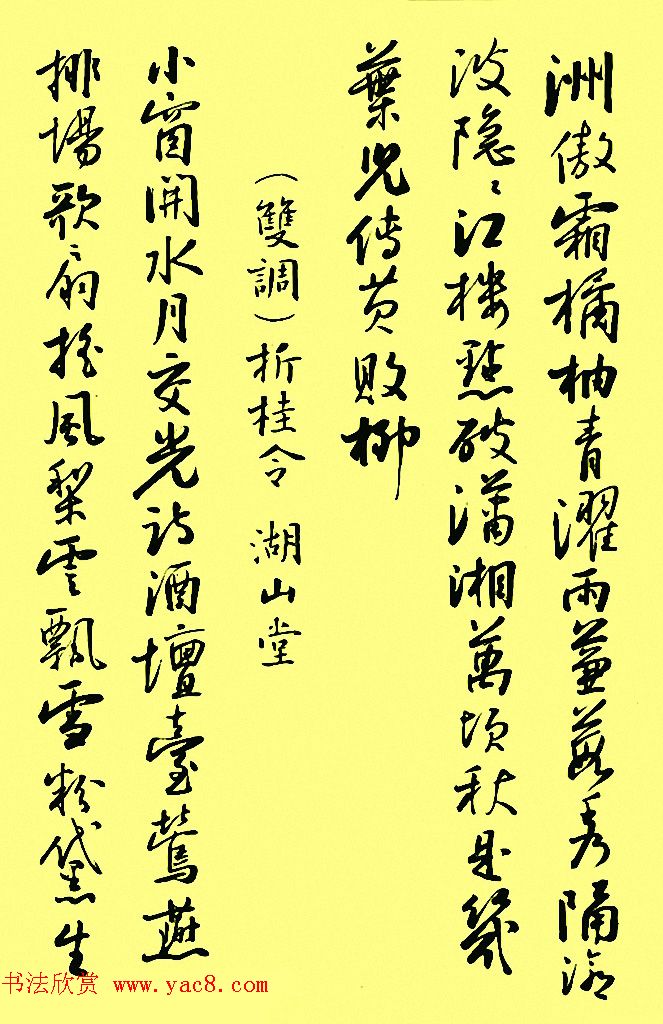 洲傲霜橘柚青濯雨蒹葭秀隔滄
波隐〻江樓點破瀟湘萬頃秋是幾
葉兒傳黄敗柳
（雙調）折桂令 湖山堂
小窗開水月交光詩酒壇臺鶯燕
排場歌扇搖風梨雲飄雪粉黛生
书法欣赏 www.yac8.com